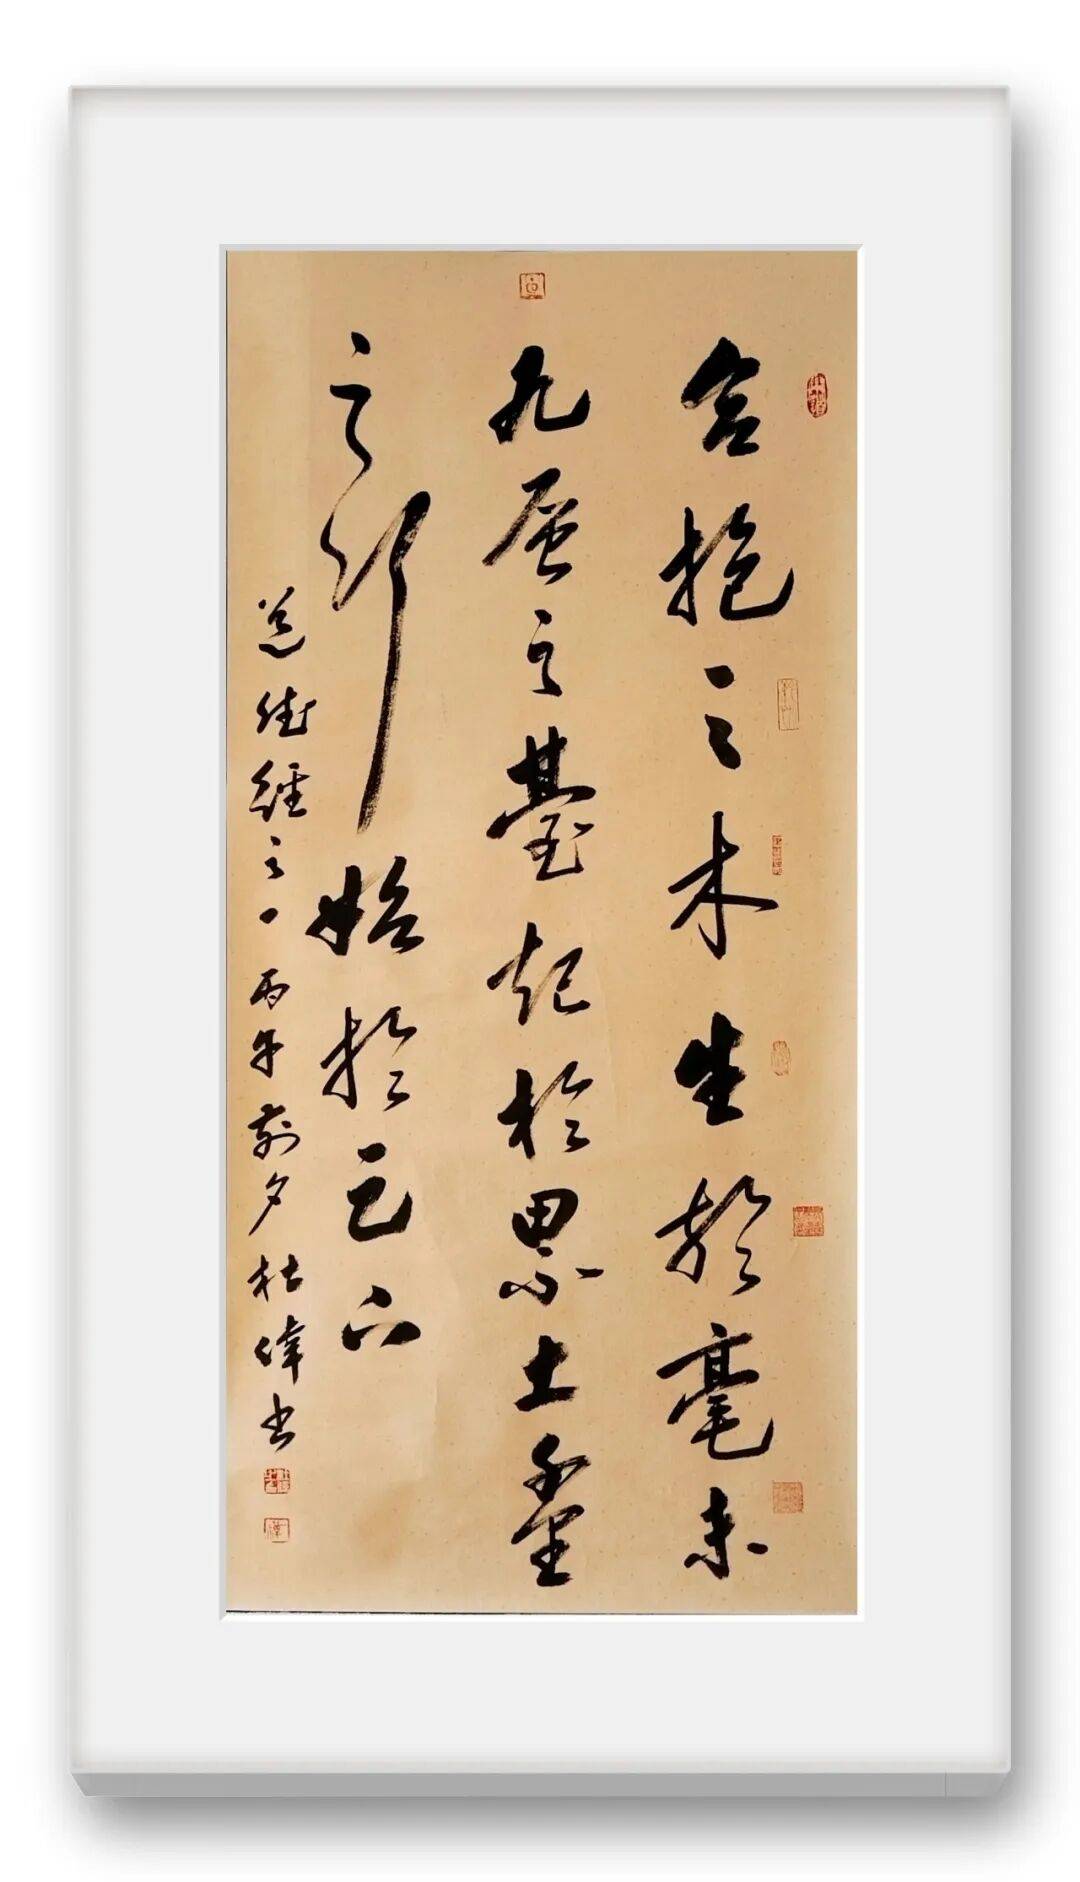 合抱之木生於毫末
九層之臺起於累土千里
之行始於足下
道德經之一丙午前夕杜偉書